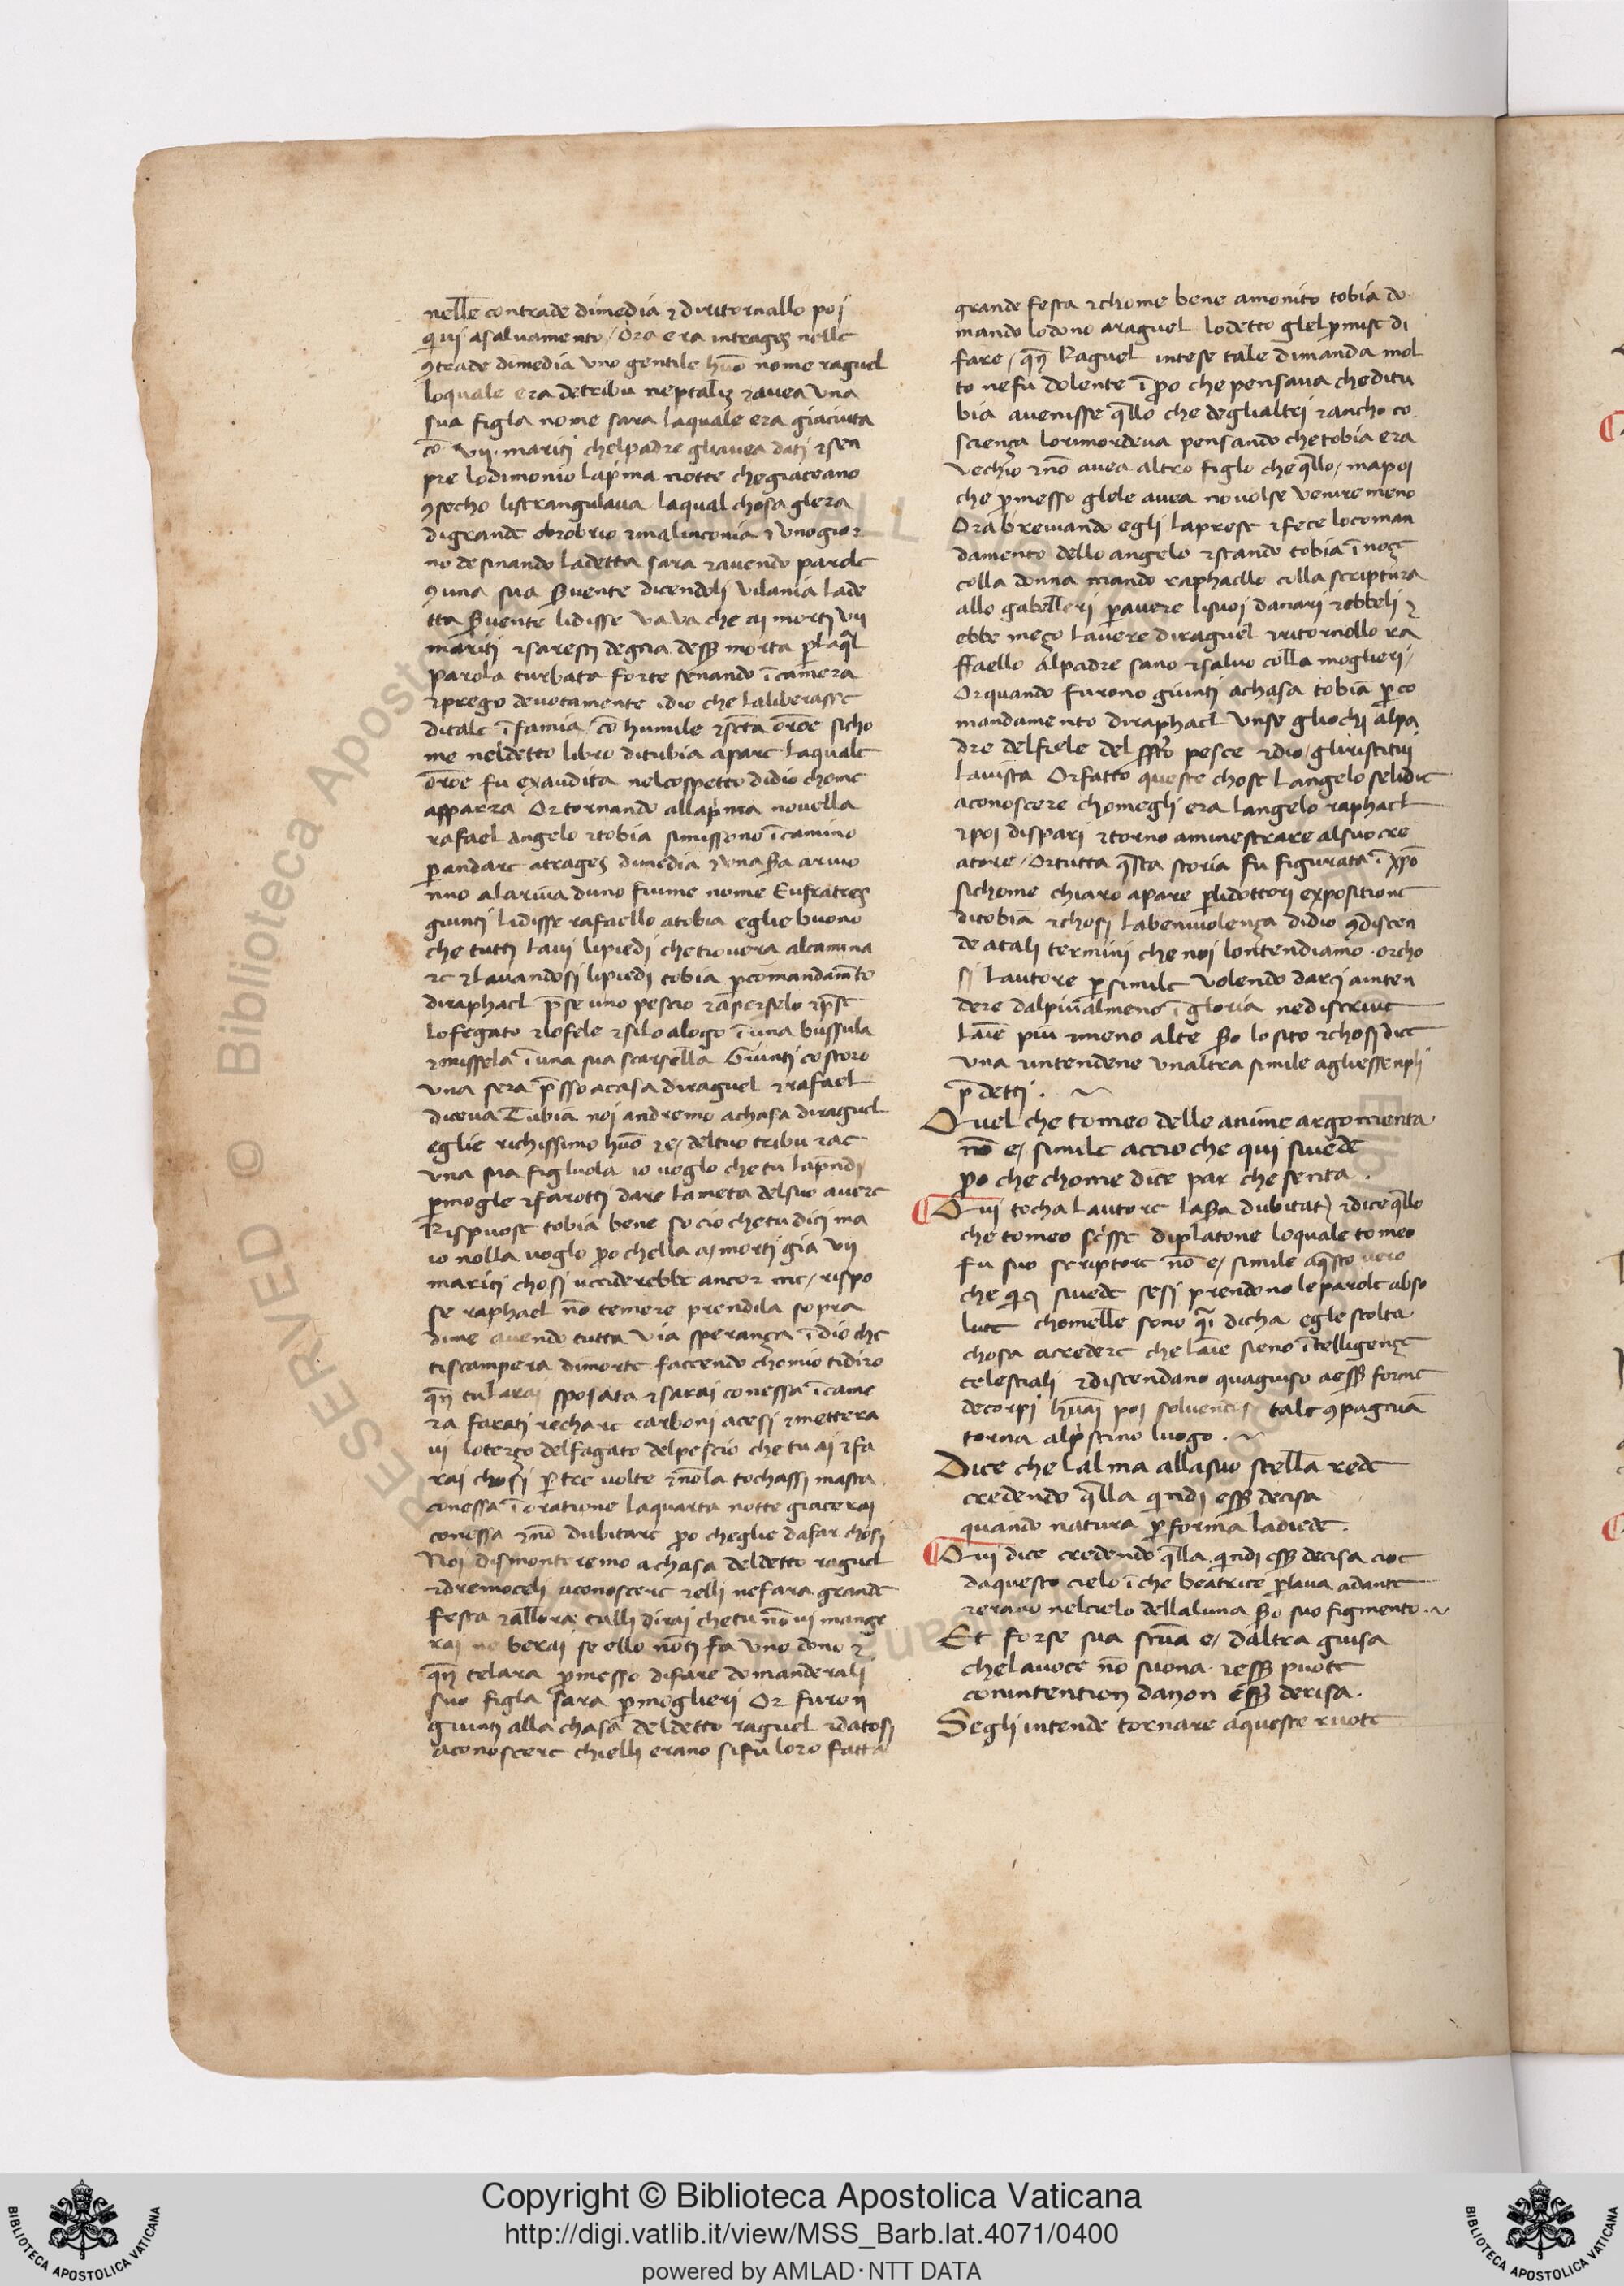 nelle contrade dimedia ⁊ diritornallo poj
qui asaluamento / Ora era intrages nelle
ꝯtrade dimedia uno gentile huō nome raguel
loquale era detribu neptalis ⁊auea una
sua figla nome sara laquale era giaciuta
cō vii mariti chelpadre gliauea dati ⁊sen
pre lodimonio lap̄ma notte chegiaceano
ꝯsecho listrangulaua laqual chosa glera
digrande obrobrio ⁊malinconia ⁊ unogior
no desinando ladetta sara ⁊auendo parole
ꝯuna sua s̄uente dicendoli vilania lade
tta s̄uente lidisse va va che ai morti vii
mariti ⁊saresti degna dess̄ morta p̄laq̄l
parola turbata forte senando ī camera
⁊prego deuotamente idio che laliberasse
ditale īfamia cō humile ⁊scta orōe sicho
me neldetto libro ditubia apare laquale
orōe fu exaudita nelcospetto didio chome
apparra Or tornando allap̄ma nouella
rafael angelo ⁊tobia simissono ī camino
p̄andare atrages dimedia ⁊ una s̄a ariuo
nno alariua duno fiume nome Eufrates
giunti lidisse rafaello atobia eglie buono
che tutti laui lipiedi chetrouera alcamina
re ⁊lauandosi lipiedi tobia p̄comandam̄to
diraphael p̄se uno pescio ⁊ap̄erselo ⁊p̄se
lofegato ⁊lofele ⁊silo alogo ī una bussula
⁊missela ī una sua scarsella Giunti costoro
una sera p̄sso acasa diraguel ⁊rafael
diceua Tubia noi andremo achasa diraguel
eglie richissimo huō ⁊e/ deltuo tribu ⁊ae
una sua figluola io uoglo che tu lap̄ndi
p̄mogle ⁊farotti dare lameta delsuo auere
Rispuose tobia bene so cio chetu dici ma
io nolla uoglo p̄o chella a/ morti gia vii
mariti chosi ucciderebbe ancor me / rispo
se raphael nō temere prendila sopra
dime auendo tutta via speranza ī dio che
tiscampera dimorte faccendo chomio tidiro
qn̄ tularai sposata ⁊sarai conessa ī came
ra farati rechare carboni acesi ⁊mettera
ui loterzo delfagato delpescio che tu ai ⁊fa
rai chosi p̄ tre uolte ⁊nōla tochassi masta
conessa ī oratione laquarta notte giacerai
conessa ⁊nō dubitare p̄o cheglie dafar chosi
Noi dismonteremo achasa deldetto raguel
⁊dremoceli aconoscere ⁊elli nefara grande
festa ⁊allora tulli dirai chetu nō ui mange
rai ne berai se ello nōti fa uno dono ⁊
qn̄ telara p̄messo difare domanderali
suo figla sara p̄moglieri Or furon
giunti alla chasa deldetto raguel ⁊datosi
aconoscere chielli erano sifu loro fatta
grande festa ⁊chome bene amonito tobia do
mando lodono araguel lodetto glelp̄mise di
fare / qn̄ Raguel intese tale dimanda mol
to nefu dolente īp̄o che pensaua cheditu
bia auenisse q̄llo che deglialtri ⁊ancho co
scienza lorimordeua pensando chetobia era
vechio ⁊nō auea altro figlo che q̄llo / mapoi
che p̄messo glele auea nouolse venire meno
Ora breuiando egli laprese ⁊fece locoman
damento dello angelo ⁊stando tobia ī noze
colla donna mando raphaello colla scriptura
allo gabelleri p̄auere lisuoi danari ⁊ebbeli ⁊
ebbe mezo lauere diraguel ⁊ritornollo ra
ffaello alpadre sano ⁊saluo colla moglieri /
Orquando furono giunti achasa tobia p̄co
mandamento diraphael unse gliochi alpa
dre delfiele del s̄sto pesce ⁊dio gliristitui
lauista Orfatto queste chose langelo selidie
aconoscere chomegli era langelo raphael
⁊poi dispari ⁊torno aminestrare alsuo cre
atore / Ortutta q̄sta storia fu figurata ī xp̄o
sichome chiaro apare p̄lidottori expositione
ditobia ⁊chosi labeniuolenza didio ꝯdiscen
de atali termini che noi lontendiamo . orcho
si lautore p̄simile volendo darci ainten
dere dalpiu īalmeno ī gloria nediscriue
lāie piu ⁊meno alte s̄o losito ⁊chosi dice
una intendene unaltra simile agliessenpli
p̄detti .
Quel che tomeo delle anime argomenta
nō e/ simile accio che qui siuede
p̄o che chome dice par che senta .
Qui tocha lautore las̄a dubitat̄ ⁊dice q̄llo
che tomeo sc̄sse diplatone loquale tomeo
fu suo scriptore nō e/ simile aq̄sto vero
che qui siuede sesi prendono le parole abso
lute chomelle sono qui dicha egle stolta
chosa acredere che lāie sieno ītelligenze
celestiali ⁊discendano quagiuso aess̄ forme
decorpi hūai poi soluendosi tale ꝯpagnia
torna alp̄stino luogo .
Dice che lalma allasuo stella rede
credendo q̄lla quindi ess̄ decisa
quando natura p̄ forma ladiede .
Qui dice credendo q̄lla quindi ess̄ decisa cioe
daquesto cielo ī che beatrice p̄laua adante
⁊erano nelcielo dellaluna s̄o suo figmento .
Et forse sua scn̄a e/ daltra guisa
chelauoce nō suona ⁊ess̄ puote
conintention danon ess̄ derisa .
Segli intende tornare aqueste ruote
Copyright © Biblioteca Apostolica Vaticana
http://digi.vatlib.it/view/MSS_Barb.lat.4071/0400
powered by AMLAD·NTT DATA